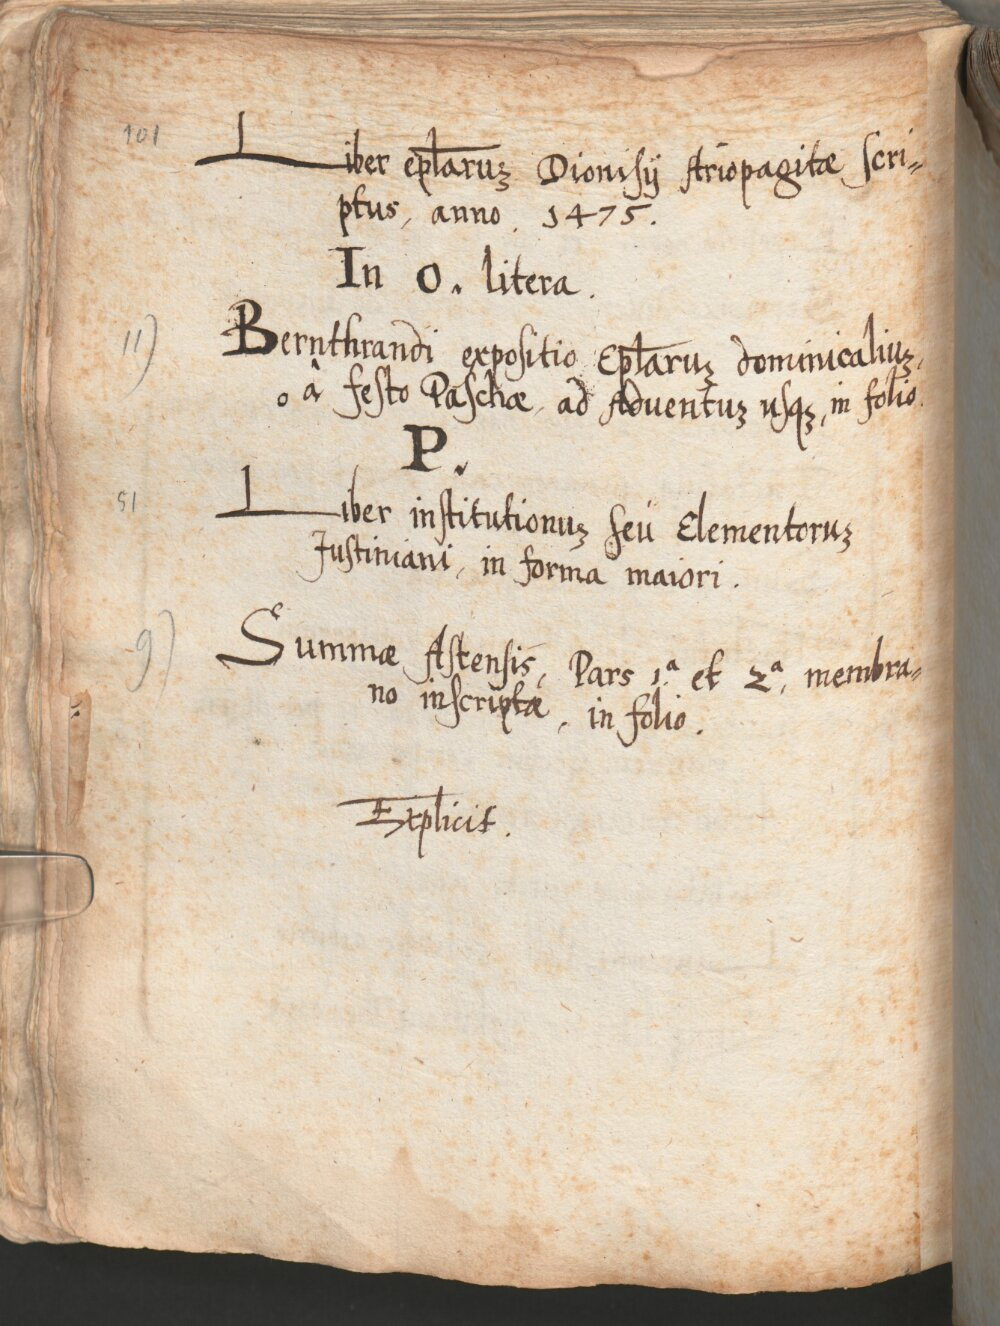 101
Liber epl̄aruꝫ Dionisij Ariopagitæ scri⸗
ptus, anno. 1475.
In o. litera.
11)
Bernthrandi expositio Epl̄aruꝫ dominicaliuꝫ,
o â festo Paschæ, ad Aduentuꝫ usqꝫ, in folio.
P.
51
Liber institutionuꝫ seu Elementoruꝫ
Justiniani, in forma maiori.
9)
Summæ Astensis, Pars 1.ª et 2ª, membra⸗
no inscriptæ, in folio.
Explicit.